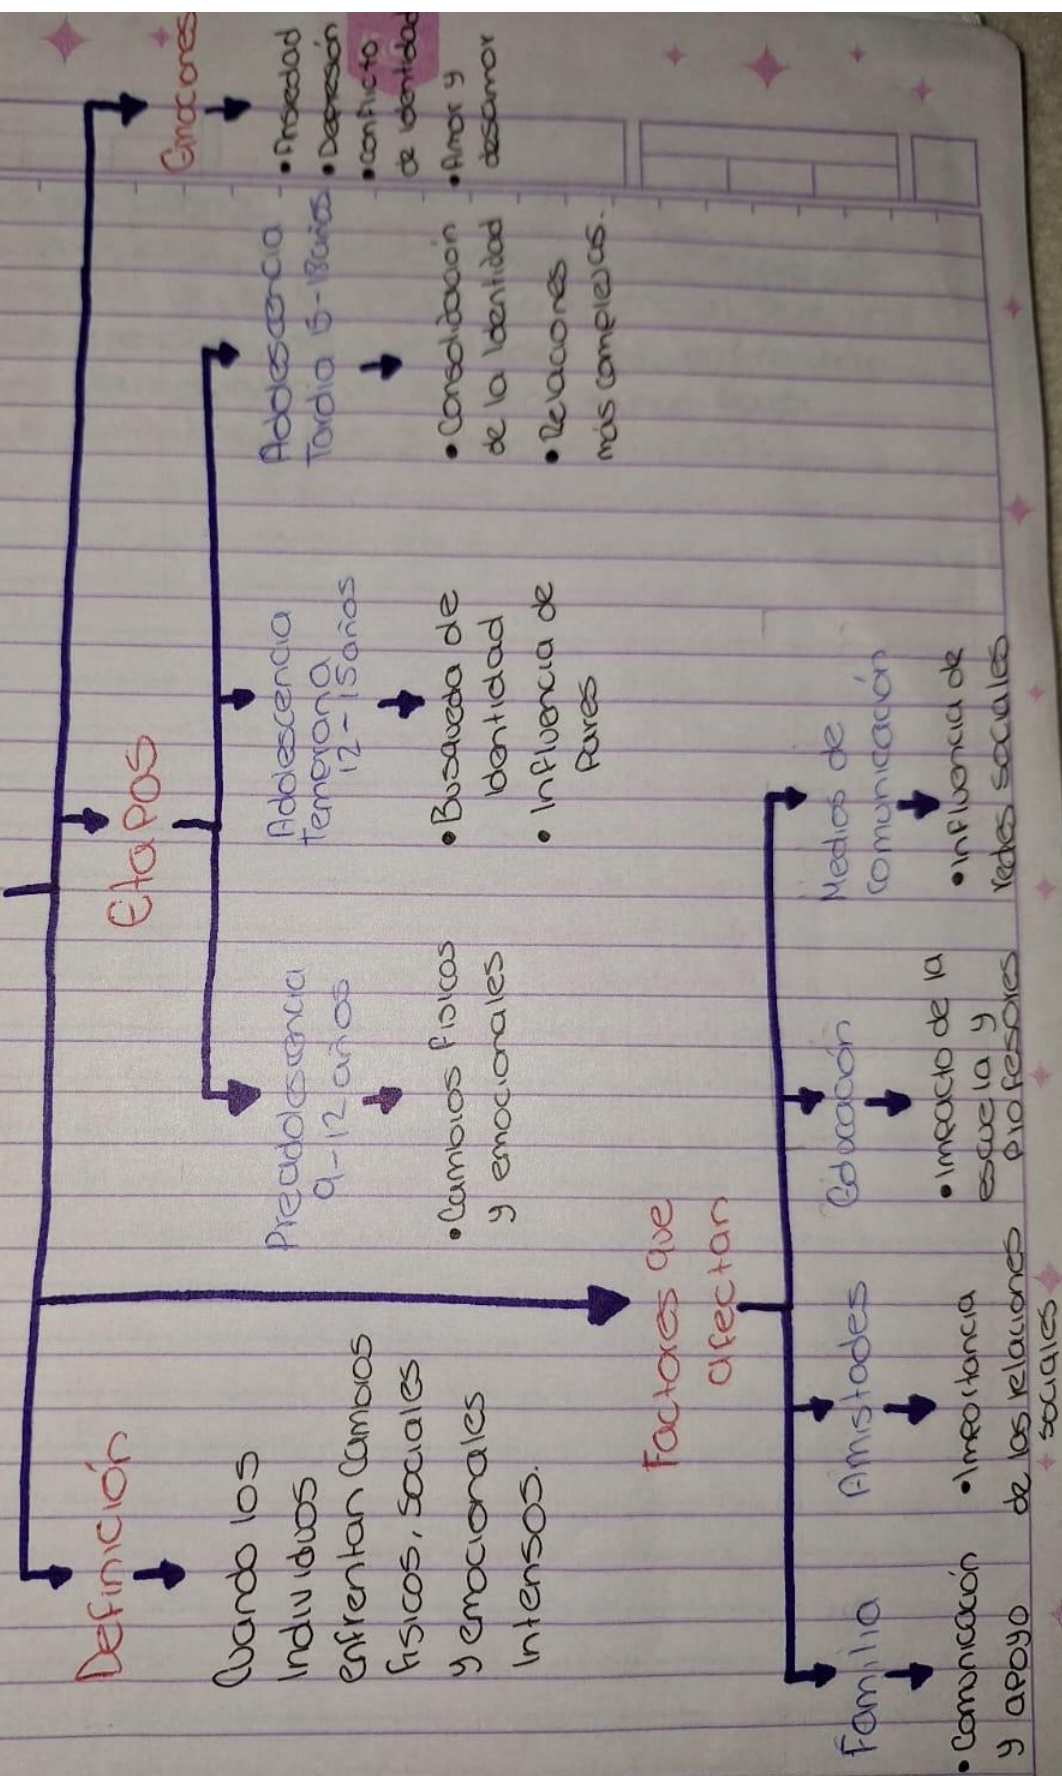 Definición
Cuando los
Individuos
enfrentan Cambios
físicos, sociales
y emocionales
Intensos.
Etapas
Preadolescencia
9-12 años
• Cambios físicos
y emocionales
Adolescencia
temprana
12-15 años
• Busqueda de
Identidad
• Influencia de
Pares
Adolescencia
Tardia 15-18 años
• Consolidación
de la Identidad
• Relaciones
más complejas.
Emociones
• Ansiedad
• Depresión
• Conflicto
de Identidad
• Amor y
desamor
Factores que
afectan
Familia
• Comunicación
y apoyo
Amistades
• Importancia
de las relaciones
sociales
Educación
• Impacto de la
escuela y
profesores
Medios de
comunicación
• Influencia de
redes sociales